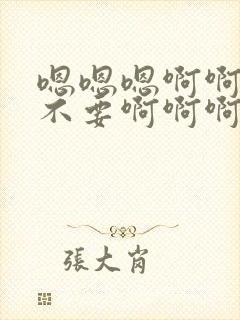 嗯嗯嗯啊啊
不要啊啊啊
張大肖